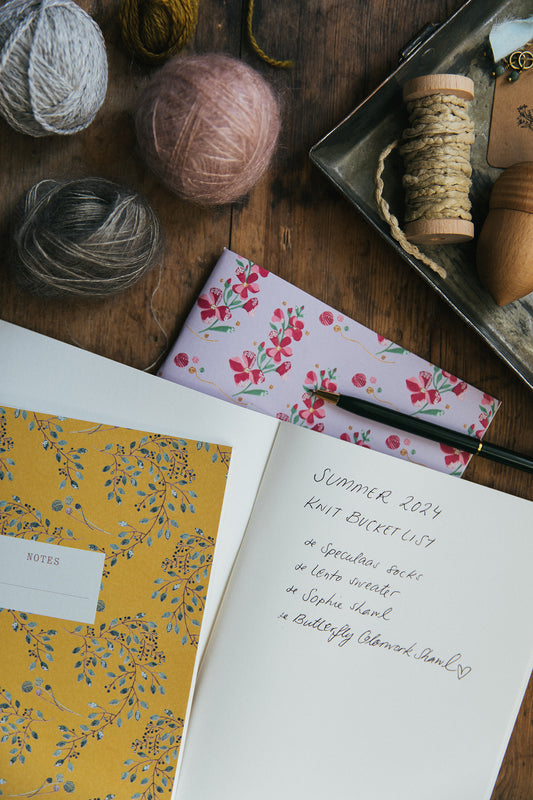 NOTES
SUMMER 2024
KNIT BUCKET LIST
Speculaas socks
Lento sweater
Sophie shawl
Butterfly Colorwork Shawl ♡